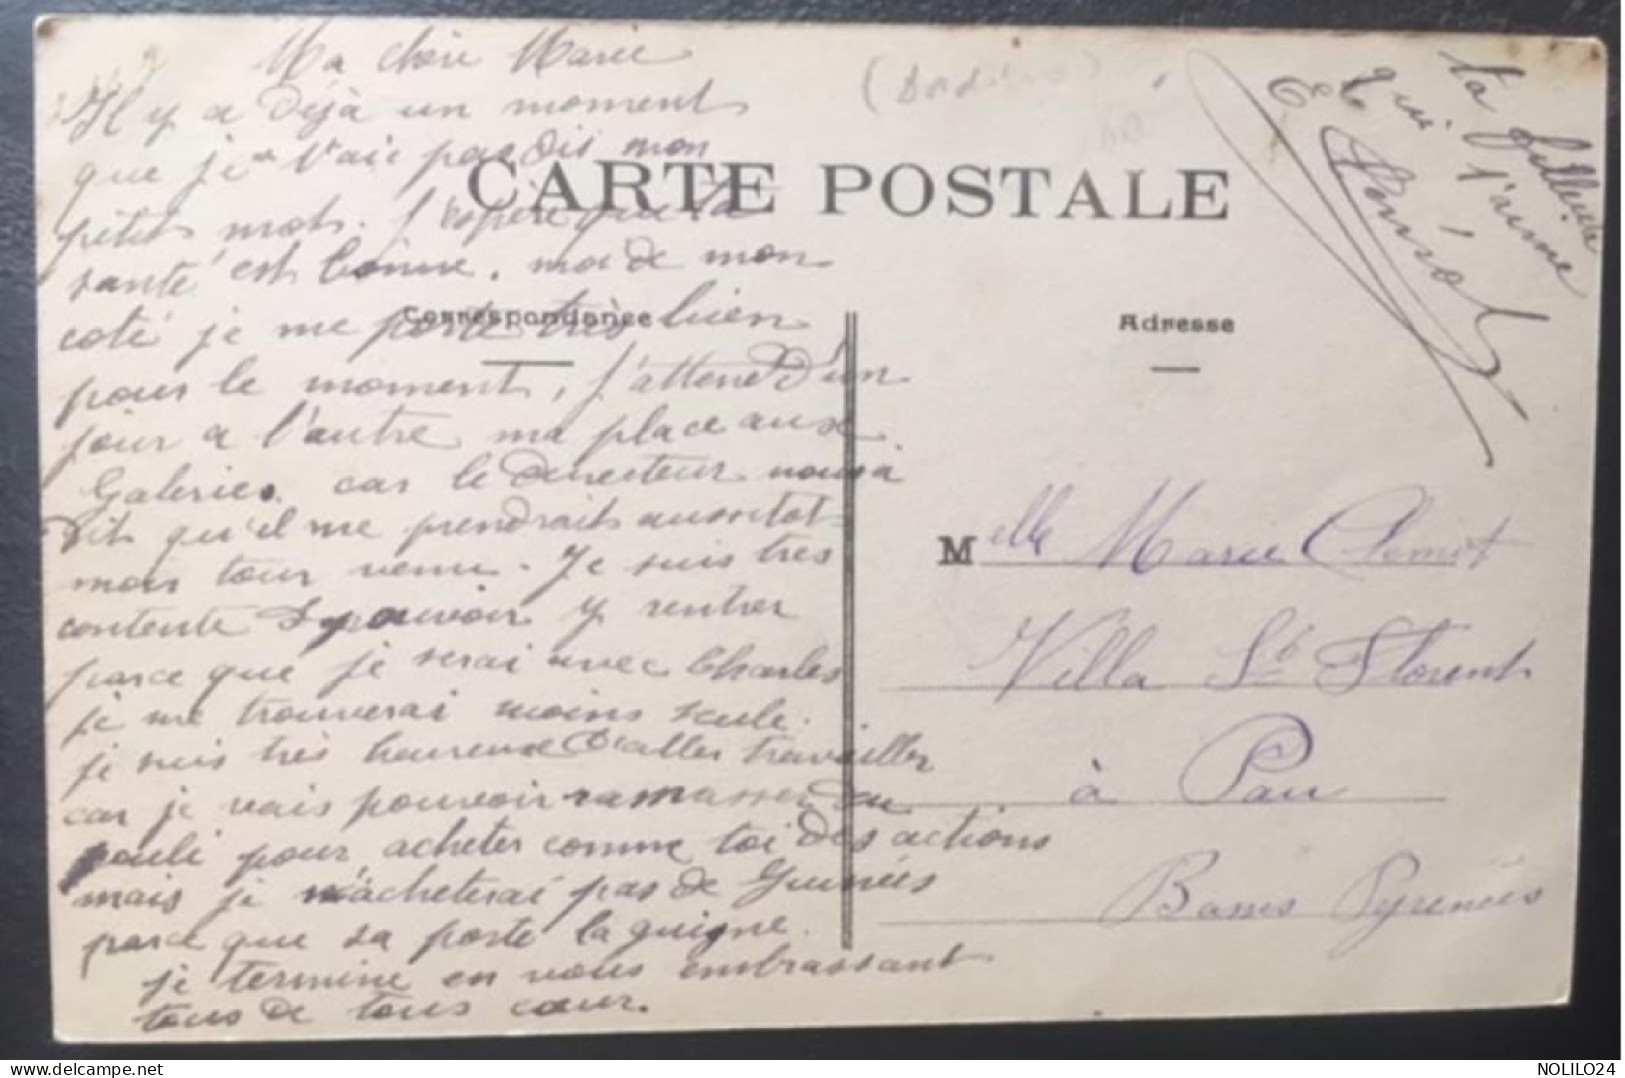 Ma chère Marie
Il y a déjà un moment
que je t'aie pas dis mon
petit mot. J'espère que ta
santé est bonne. moi de mon
coté je me porte très bien
pour le moment, j'attend d'un
jour a l'autre ma place aux
Galeries. car le directeur nous a
dit qu'il me prendrait aussitot
mon tour venu. Je suis très
contente d'pouvoir y rentrer
parce que je serai avec Charles
je me trouverai moins seule.
je suis très heureuse d'aller travailler
car je vais pouvoir ramasser du
pour acheter comme toi des actions
mais je n'acheterai pas de Guinées
parce que sa porte la guigne.
je termine en vous embrassant
tous de tous cœur.
CARTE POSTALE
Correspondance
Adresse
ta filleule
qui t'aime
Melle Marie
Villa St Florent
à Pau
Basses Pyrénées
NOLILO24